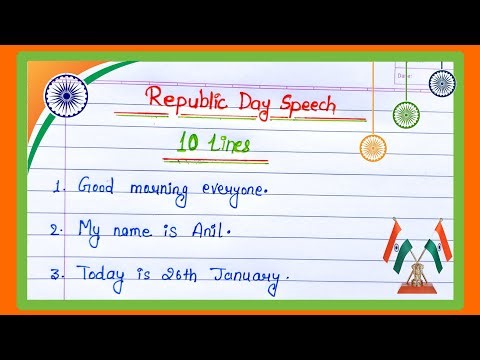 Date:
Republic Day Speech
10 Lines
1. Good morning everyone.
2. My name is Anil.
3. Today is 26th January.